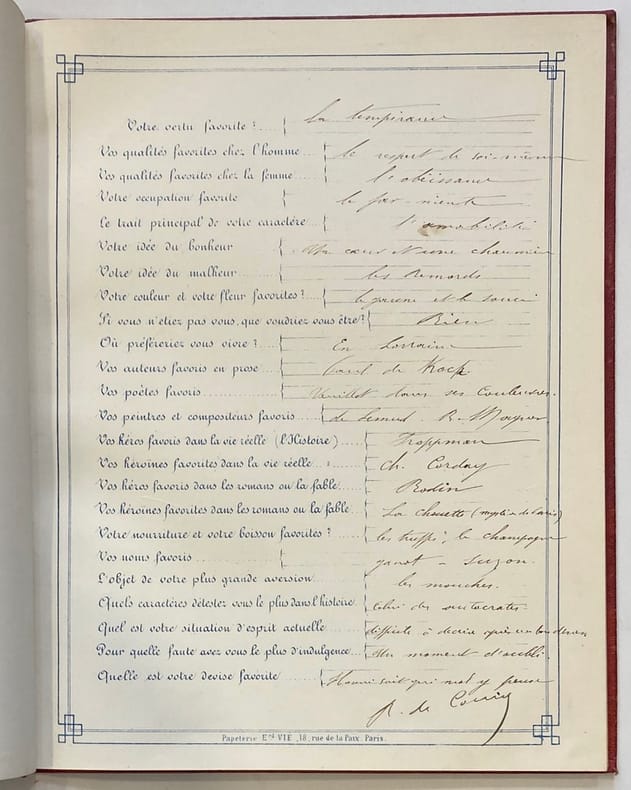 Votre vertu favorite ? La tempérance
Vos qualités favorites chez l'homme le respect de soi-même
Vos qualités favorites chez la femme l'obéissance
Votre occupation favorite le far-niente
Le trait principal de votre caractère l'amabilité
Votre idée du bonheur Un cœur et une chaumière
Votre idée du malheur les Remords
Votre couleur et votre fleur favorites ? le jaune et le souci
Si vous n'étiez pas vous, que voudriez vous être ? Rien
Où préféreriez vous vivre ? En Lorraine
Vos auteurs favoris en prose Paul de Kock
Vos poètes favoris Veuillot dans ses Couleuvres.
Vos peintres et compositeurs favoris de Lemud
Vos héros favoris dans la vie réelle (l'Histoire) Troppman
Vos héroïnes favorites dans la vie réelle Ch. Corday
Vos héros favoris dans les romans ou la fable Rodin
Vos héroïnes favorites dans les romans ou la fable La chouette (mystères de Paris)
Votre nourriture et votre boisson favorites ? les truffes, le champagne
Vos noms favoris Suzon.
L'objet de votre plus grande aversion les mouches.
Quels caractères détestez vous le plus dans l'histoire Celui des autocrates
Quel est votre situation d'esprit actuelle difficile à décrire après un bon dîner
Pour quelle faute avez vous le plus d'indulgence Un moment d'oubli.
Quelle est votre devise favorite Honni soit qui mal y pense
R. de
Papeterie E^nd VIÉ, 18, rue de la Paix. Paris.